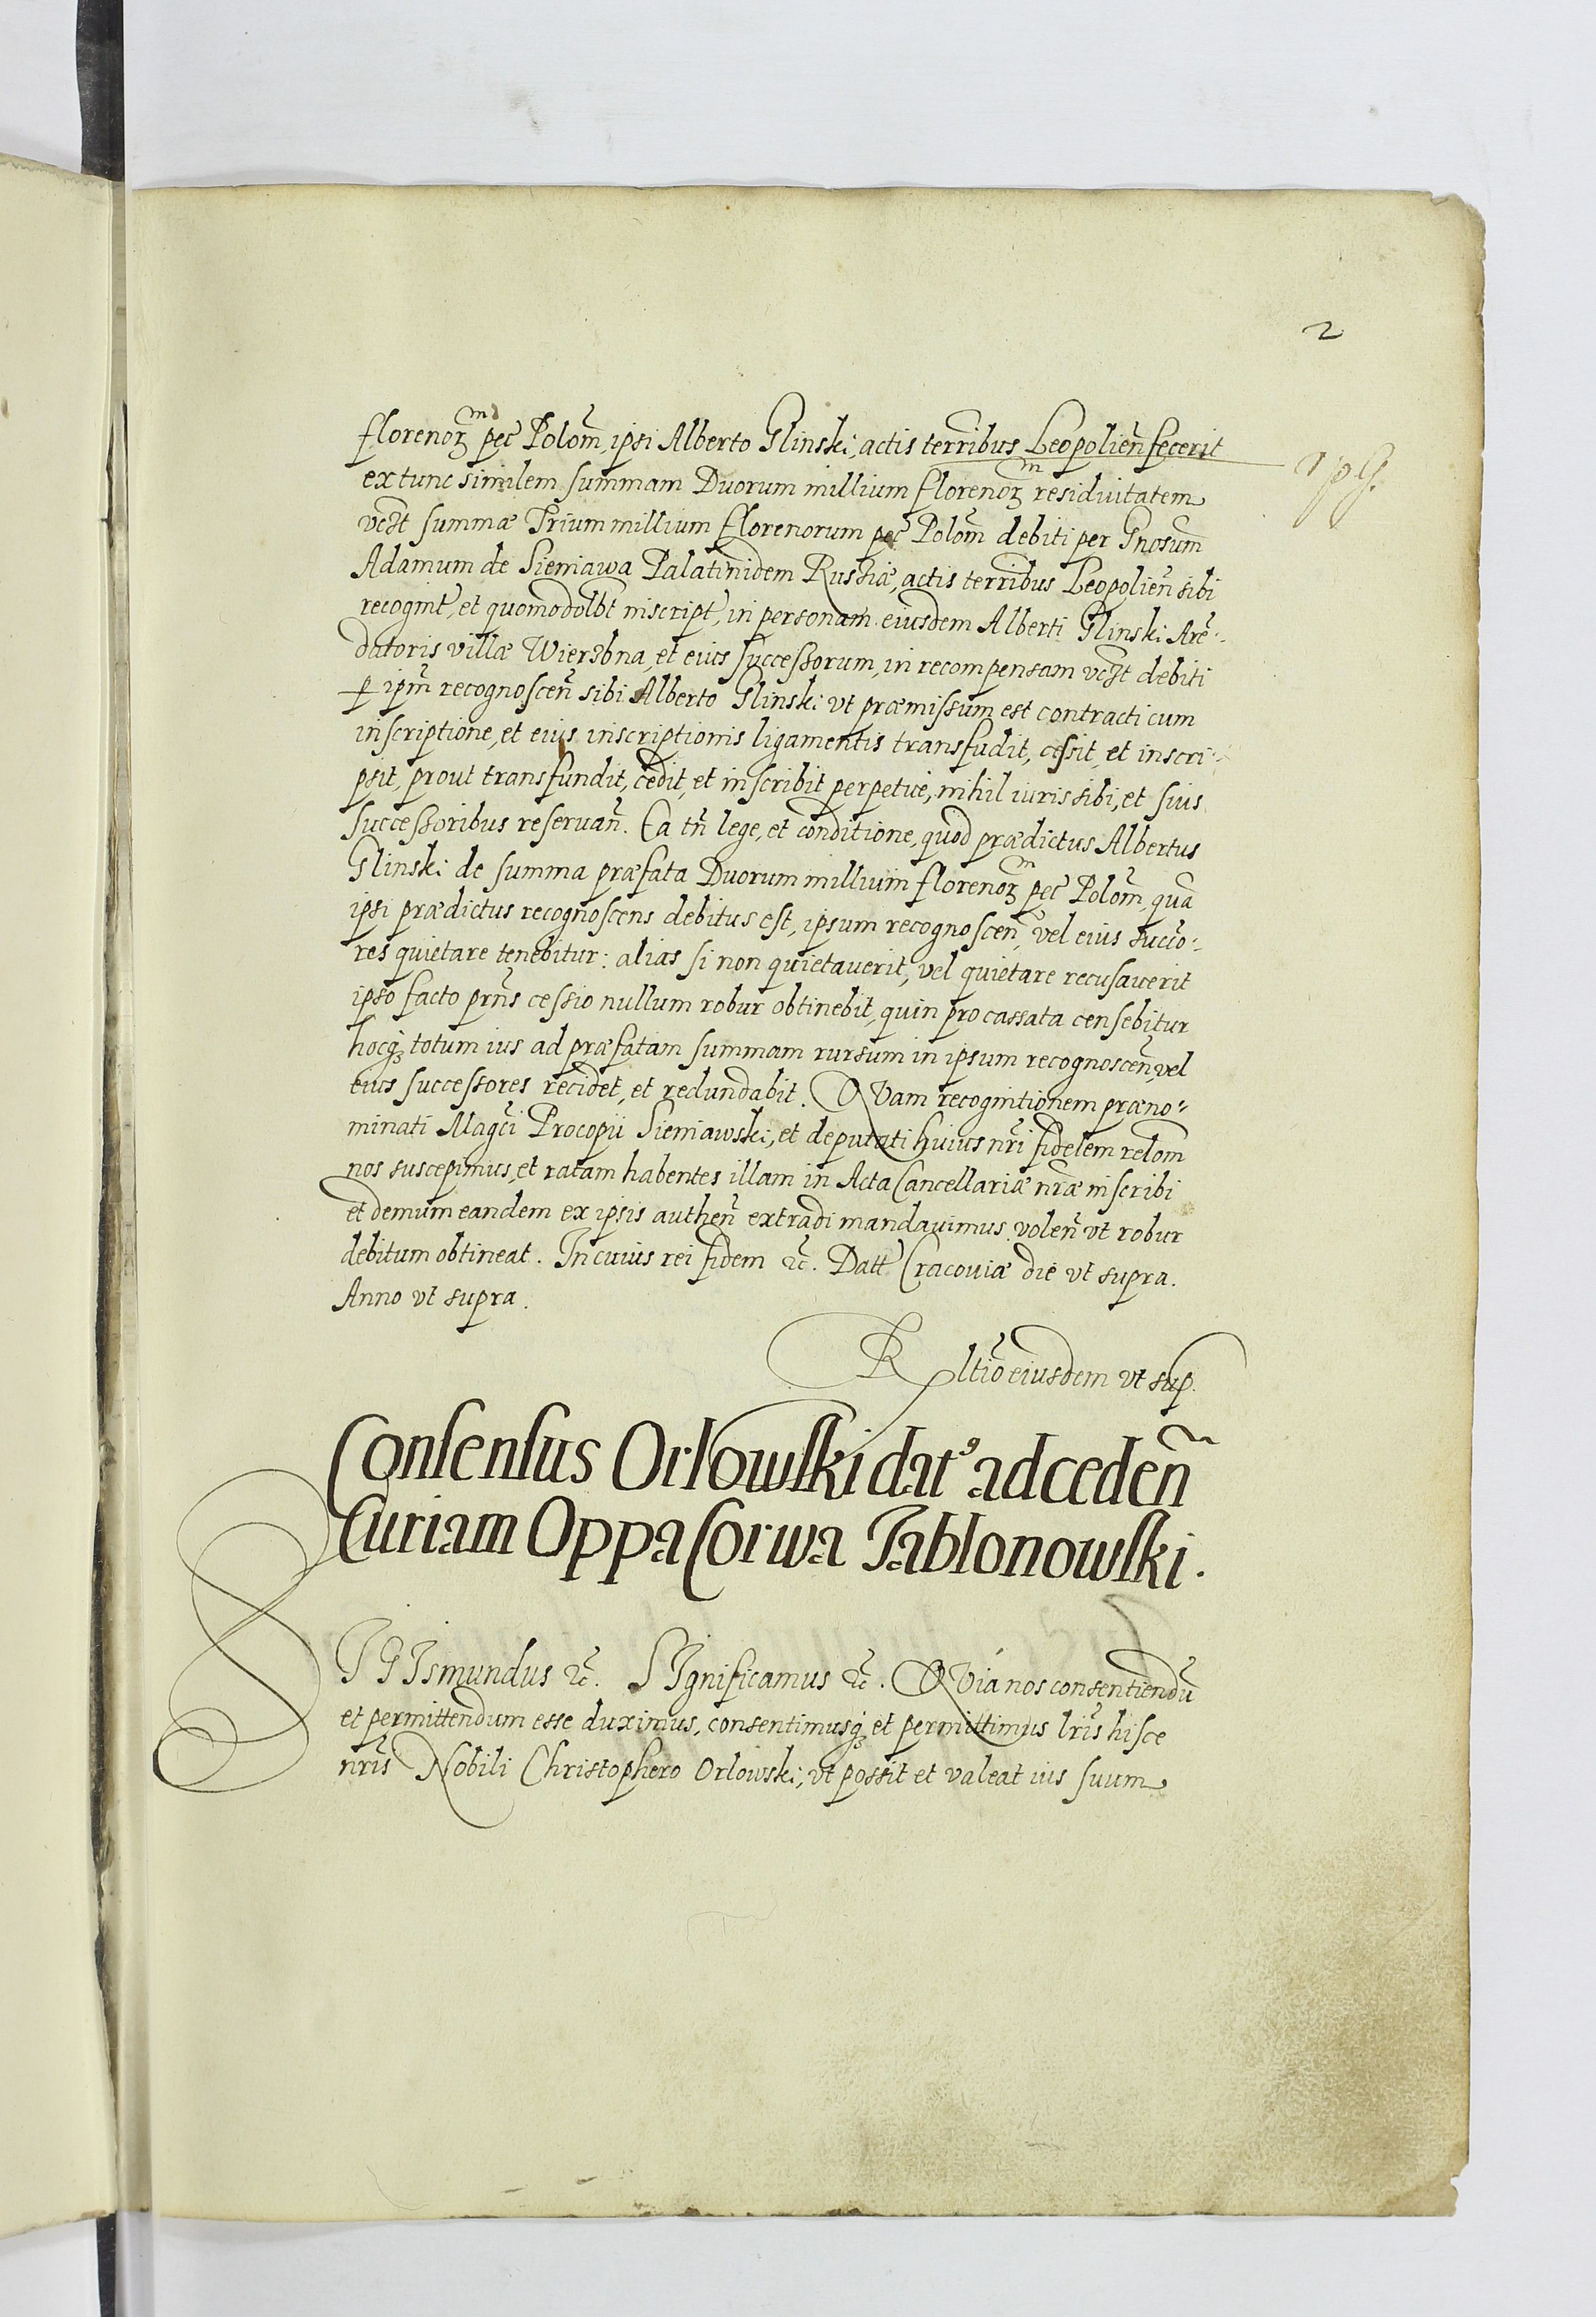 2
florenoꝝ̃ pec̃ Polom̃, ipsi Alberto Glinski, actis terribus Leopolien̄ fecerit
ex tunc similem summam Duorum millium florenoꝝ̃ residuitatem
vc̃zt summæ Trium millium florenorum pec̃ Polom̃ debiti per Gnosum̃
Adamum de Sieniawa Palatinidem Russiæ, actis terribus Leopolien̄ sibi
recognit̃, et quomodolb̃t inscript̃, in personam eiusdem Alberti Glinski Arẽ-
datoris villæ Wierzbna, et eius successorum, in recompensam vc̃zt debiti
ꝑ ipm̃ recognoscen̄ sibi Alberto Glinski vt præmissum est contracti cum
inscriptione, et eius inscriptionis ligamentis transfudit, cessit, et inscri-
psit, prout transfundit, cedit, et inscribit perpetue, nihil iuris sibi, et suis
successoribus reseruan̄. Ea tñ lege, et conditione, quod prædictus Albertus
Glinski de summa præfata Duorum millium florenoꝝ̃ pec̃ Polom̃, quã
ipsi prædictus recognoscens debitus est, ipsum recognoscen̄, vel eius succo-
res quietare tenebitur: alias si non quietauerit, vel quietare recusauerit
ipso facto prñs cessio nullum robur obtinebit, quin pro cassata censebitur
hocqꝫ totum ius ad præfatam summam rursum in ipsum recognoscen̄, vel
eius successores recidet, et redundabit. QVam recognitionem præno-
minati Magc̃i Procopii Sieniawski, et deputati huius nr̃i fidelem relom̃
nos suscepimus, et ratam habentes illam in Acta Cancellariæ nr̃æ inscribi
et demum eandem ex ipsis authen̄ extradi mandauimus, volen̄ vt robur
debitum obtineat. In cuius rei fidem &c̃. Datt̃ Cracouiæ die vt supra.
Anno vt supra.
Rltĩo eiusdem vt sup.
Consensus Orlowski datꝰ ad ceden̄
Curiam Oppa Corwa Jablonowski.
SIGIsmundus &c̃. SIgnificamus &c̃. QVia nos consentiendũ
et permittendum esse duximus, consentimusqꝫ et permittimus lr̃is hisce
nr̃is Nobili Christophero Orlowski, vt possit et valeat ius suum